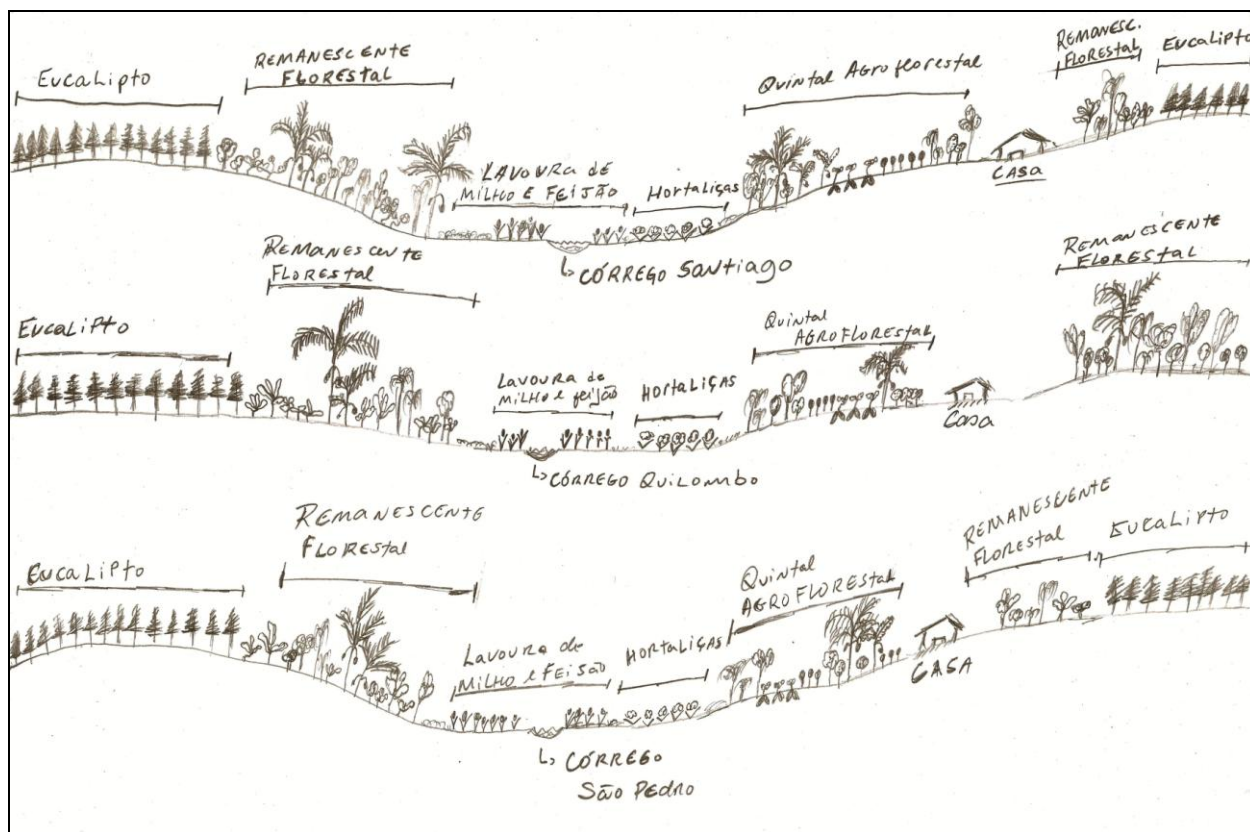 Eucalipto
REMANESCENTE
FLORESTAL
LAVOURA DE
MILHO E FEIJÃO
Hortaliças
Quintal Agroflorestal
CASA
REMANESC.
FLORESTAL
Eucalipto
CÓRREGO Santiago
Eucalipto
Remanescente
Florestal
Lavoura de
milho e feijão
HORTALIÇAS
Quintal
AGROFLORESTAL
Casa
Remanescente
FLORESTAL
CÓRREGO QUILOMBO
EucaLipto
REMANESCENTE
FLORESTAL
Lavoura de
MILHO e FEISÃO
HORTALIÇAS
Quintal
AGROFLORESTAL
CASA
REMANESCENTE
FLORESTAL
EUCALIPTO
CÓRREGO
São PEDRO